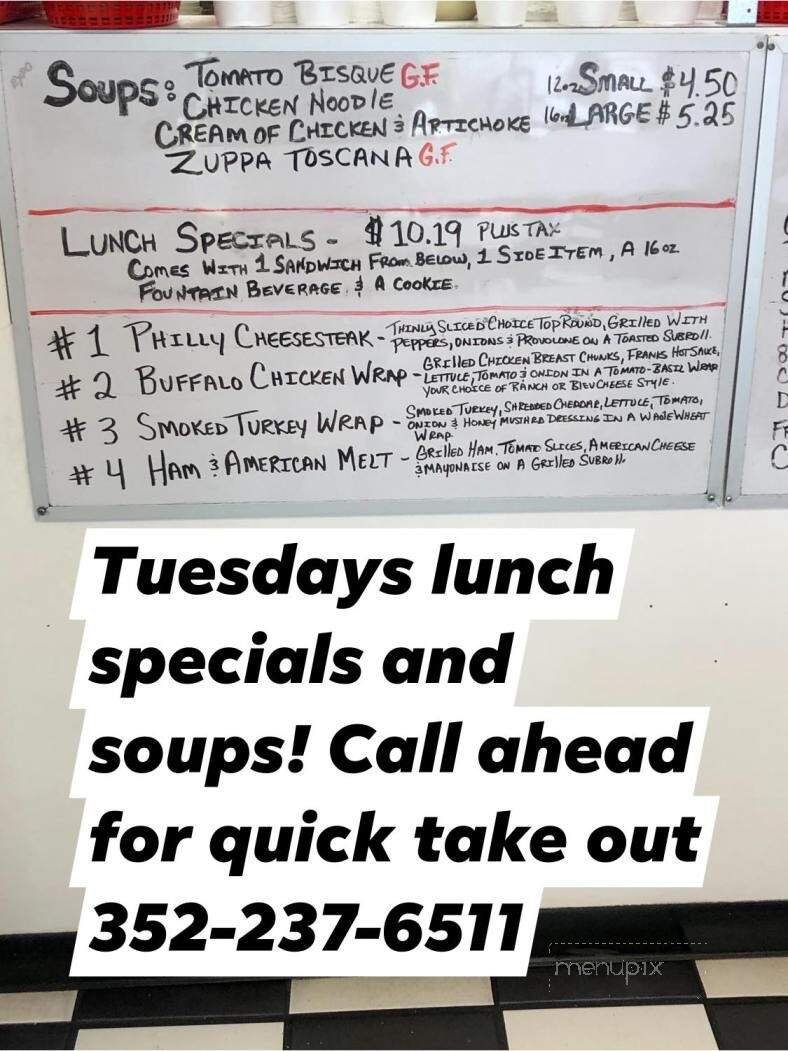 Soups: TOMATO BISQUE G.F. 12oz SMALL $4.50
CHICKEN NOODLE 16oz LARGE $5.25
CREAM OF CHICKEN & ARTICHOKE
ZUPPA TOSCANA G.F.
LUNCH SPECIALS - $10.19 PLUS TAX
COMES WITH 1 SANDWICH FROM BELOW, 1 SIDE ITEM, A 16oz
FOUNTAIN BEVERAGE & A COOKIE.
#1 PHILLY CHEESESTEAK - THINLY SLICED CHOICE TOP ROUND, GRILLED WITH
PEPPERS, ONIONS & PROVOLONE ON A TOASTED SUBROLL.
#2 BUFFALO CHICKEN WRAP - GRILLED CHICKEN BREAST CHUNKS, FRANKS HOT SAUCE,
LETTUCE, TOMATO & ONION IN A TOMATO-BASIL WRAP
YOUR CHOICE OF RANCH OR BLEU CHEESE STYLE.
#3 SMOKED TURKEY WRAP - SMOKED TURKEY, SHREDDED CHEDDAR, LETTUCE, TOMATO,
ONION & HONEY MUSTARD DRESSING IN A WHOLE WHEAT
WRAP
#4 HAM & AMERICAN MELT - GRILLED HAM, TOMATO SLICES, AMERICAN CHEESE
& MAYONAISE ON A GRILLED SUBROLL.
Tuesdays lunch
specials and
soups! Call ahead
for quick take out
352-237-6511
menupix